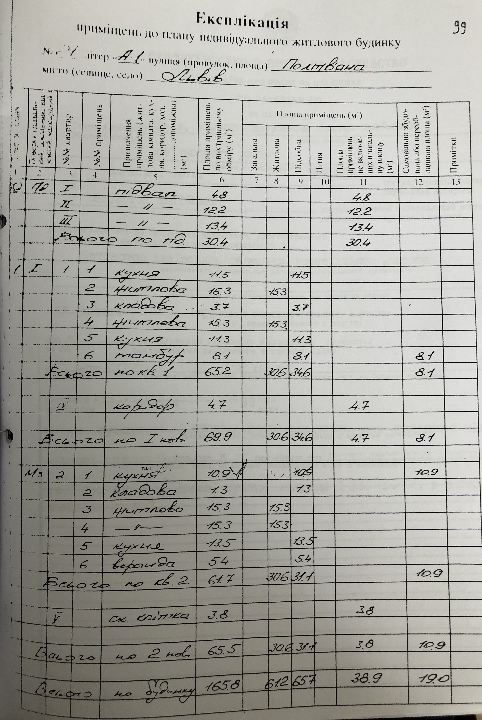 99
Експлікація
приміщень до плану індивідуального житлового будинку
літер „А-1" вулиця (провулок, площа) Полтвана
місто (селище, село) Львів
№№ квартир
№№ приміщень
Призначення приміщень
Площа приміщень по внутрішньому обміру (м²)
Площа приміщень (м²)
Загальна
Житлова
Підсобна
Літня
Примітки
2 3 4 5 6 7 8 9 10 11 12 13
Пд I підвал 4.8 4.8
II — " — 12.2 12.2
III — " — 13.4 13.4
Всього по під 30.4 30.4
1 I 1 1 кухня 11.5 11.5
2 житлова 15.3 15.3
3 кладова 3.7 3.7
4 житлова 15.3 15.3
5 кухня 11.3 11.3
6 тамбур 8.1 8.1 8.1
Всього по кв. 1 65.2 30.6 34.6 8.1
коридор 4.7 4.7
Всього по I пов. 69.9 30.6 34.6 4.7 8.1
Мн 2 1 кухня 10.9 10.9 10.9
2 кладова 1.3 1.3
3 житлова 15.3 15.3
4 — " — 15.3 15.3
5 кухня 13.5 13.5
6 веранда 5.4 5.4
Всього по кв. 2 61.7 30.6 31.1 10.9
V сх. клітка 3.8 3.8
Всього по 2 пов. 65.5 30.6 31.1 3.8 10.9
Всього по будинку 165.8 61.2 65.7 38.9 19.0